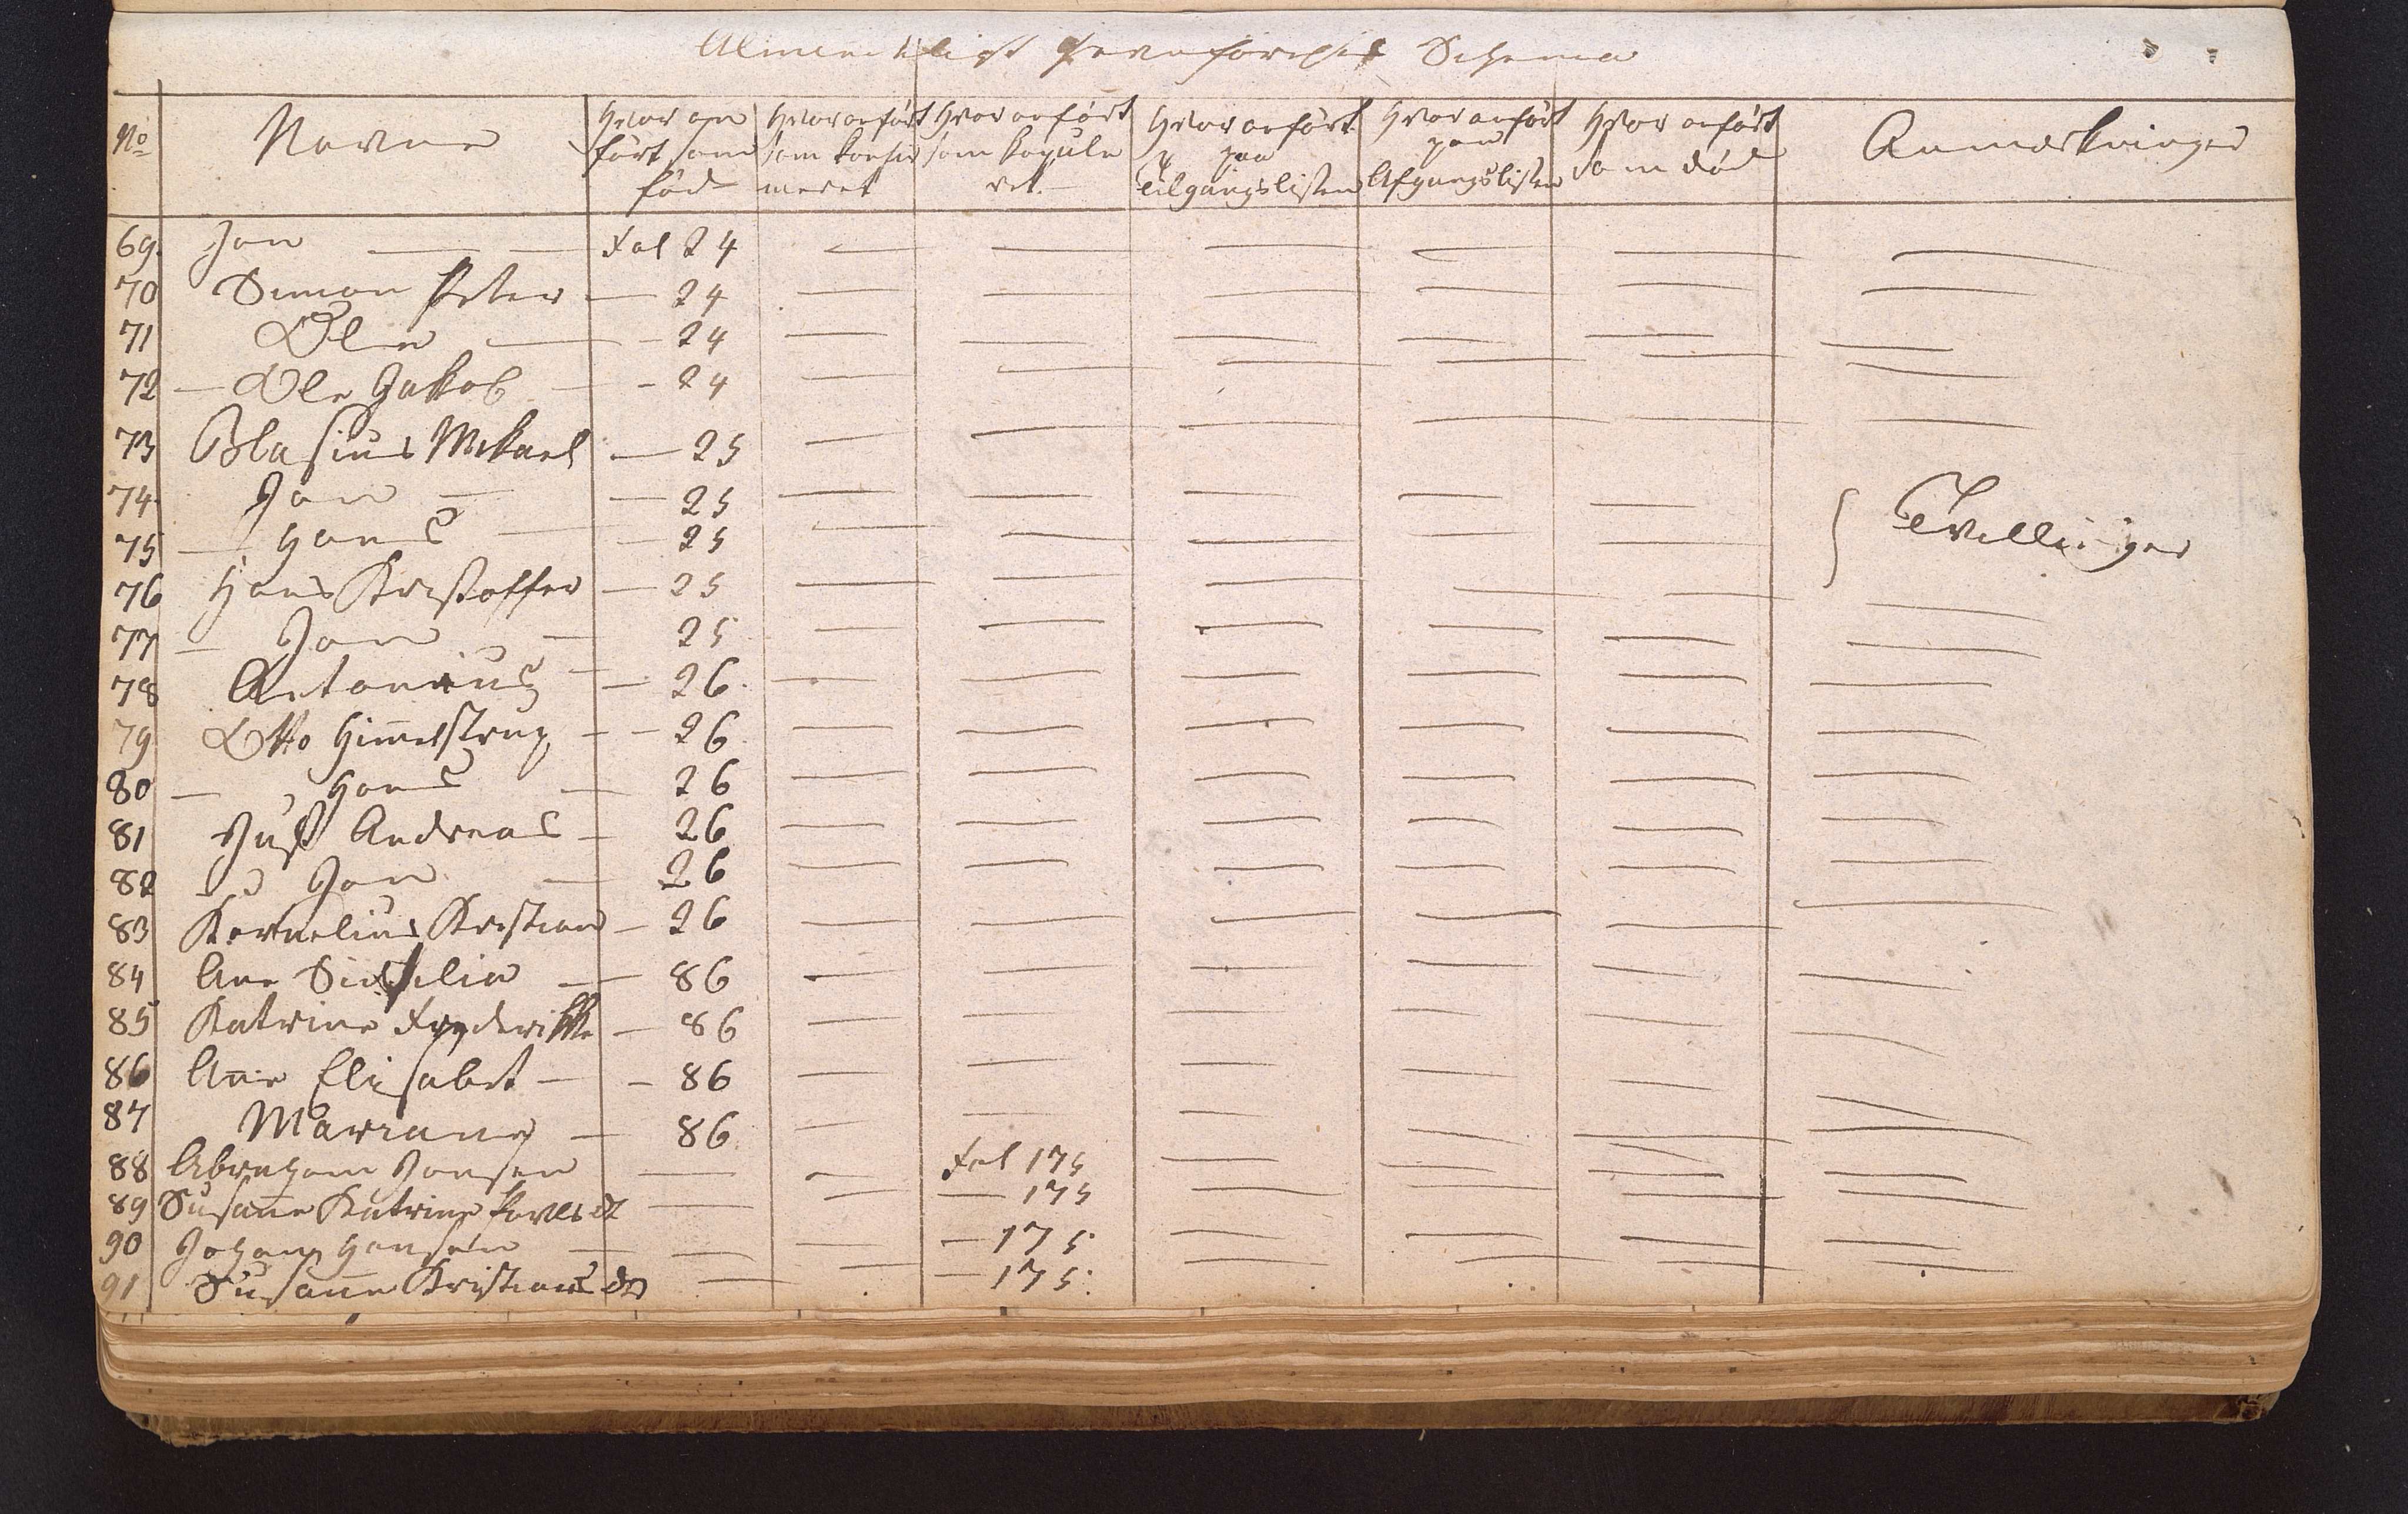 Almindeligt Jevnførelses Schema
No Navne Hvor an ført som død Hvor anført som konfir meret Hvor anført som kopule ret. Hvor anført paa Tilgangslisten Hvor anført paa Afgangslisten Hvor anført som død Anmærkninger
69. Jon — — Fol 24 — — — — — —
70 Simon Peter — 24 — — — — — —
71 Ole — - 24 — — — — — —
72 — Ole Jakob — - 24 — — — — — —
73 Blasius Mikael — 25 — — — — — —
74. Jon — — 25 — — — — —
75 — Hans — — 25 — — — — — } Tvillinger
76 Hans Kristoffer — 25 — — — — — —
77 — Jon — 25 — — — — — —
78 Antonius — — 26. — — — — — —
79 Otto Himelstrup - - 26 — — — — — —
80 — Hans — 26 — — — — — —
81 Just Andreas — 26 — — — — — —
82 Jon — 26 — — — — — —
83 Kornelius Kristian — 26 — — — — — —
84 Ane Sicilia — — 86 — — — — — —
85 Katrine Frederikke — 86 — — — — — —
86 Ane Elisabet — - 86 — — — — — —
87 Mariane — 86. — — — — — —
88 Abraham Jonsen — — Fol 175 — — — —
89 Susane Katrine Povels d — — — 175 — — — —
90 Johan Hansen — — — — 175 — — — —
91 Susane Kristians d — — — 175. — — — —